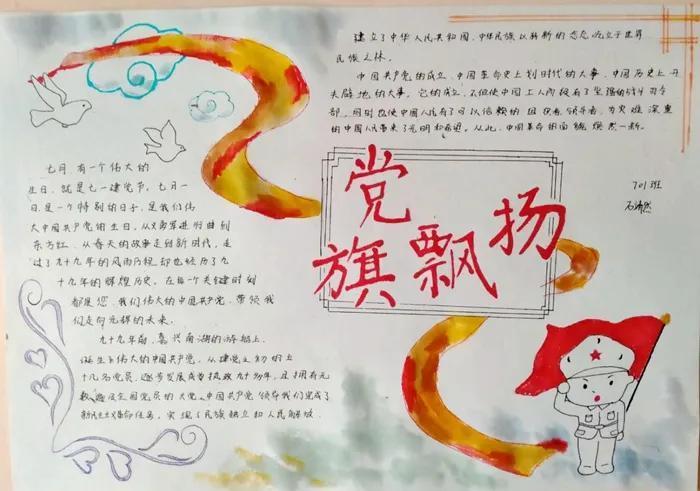 党
旗飘扬
七月 有一个伟大的
生日,就是七一建党节,七月一
日是一个特别的日子,是我们伟
大中国共产党的生日,从义勇军进行曲到
东方红,从春天的故事走向新时代,走
过了九十九年的风雨历程,却也经历了九
十九年的辉煌历史,在每一个关键时刻
都是您,我们伟大的中国共产党,带领我
们走向光辉的未来。
九十九年前,嘉兴南湖的游船上,
诞生了伟大的中国共产党,从建党之初的
十几名党员,逐步发展成为执政九十多年,且拥有
党员的大党。中国共产党领导我们完成了
新民主主义革命任务,实现了民族独立和人民解放.
建立了中华人民共和国,中华民族以崭新的姿态屹立于世界
民族之林。
中国共产党的成立,中国革命史上划时代的大事,中国历史上开
天辟地的大事。它的成立,不但使中国工人阶级有了坚强的战斗司令
部,同时也使中国人民有了可以信赖的组织者、领导者,为灾难深重
的中国人民带来了光明和希望。从此,中国革命的面貌焕然一新。
701班